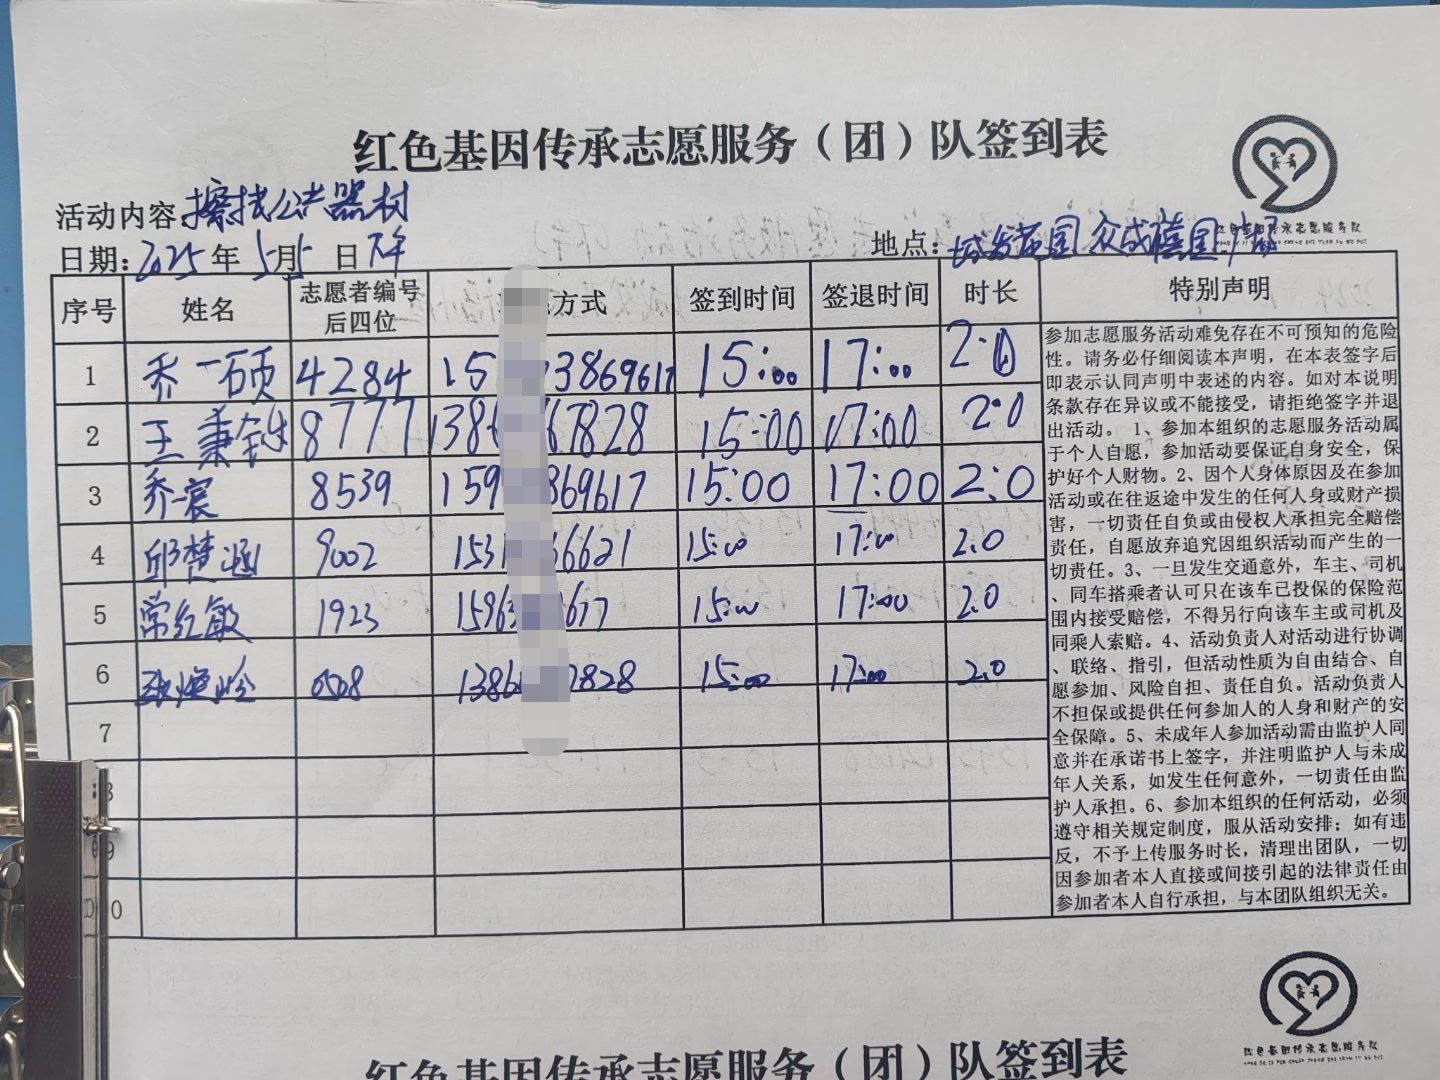 红色基因传承志愿服务（团）队签到表
活动内容:擦拭公共器材
日期:2025年5月5日下午 地点:城发花园
红色基因传承志愿服务队
序号 姓名 志愿者编号后四位 方式 签到时间 签退时间 时长 特别声明
1 乔一硕 4284 15 3869617 15:00 17:00 2.0
2 王秉 8777 138 67828 15:00 17:00 2.0
3 乔一宸 8539 159 869617 15:00 17:00 2:0
4 邱楚涵 9002 153 36621 15:00 17:00 2.0
5 常红敏 1923 1596 677 15:00 17:00 2.0
6 0508 1386 2828 15:00 17:00 2.0
7
8
9
10
参加志愿服务活动难免存在不可预知的危险
性。请务必仔细阅读本声明，在本表签字后
即表示认同声明中表述的内容。如对本说明
条款存在异议或不能接受，请拒绝签字并退
出活动。 1、参加本组织的志愿服务活动属
于个人自愿，参加活动要保证自身安全，保
护好个人财物。2、因个人身体原因及在参加
活动或在往返途中发生的任何人身或财产损
害，一切责任自负或由侵权人承担完全赔偿
责任，自愿放弃追究因组织活动而产生的一
切责任。3、一旦发生交通意外，车主、司机
、同车搭乘者认可只在该车已投保的保险范
围内接受赔偿，不得另行向该车主或司机及
同乘人索赔。4、活动负责人对活动进行协调
、联络、指引，但活动性质为自由结合、自
愿参加、风险自担、责任自负。活动负责人
不担保或提供任何参加人的人身和财产的安
全保障。5、未成年人参加活动需由监护人同
意并在承诺书上签字，并注明监护人与未成
年人关系，如发生任何意外，一切责任由监
护人承担。6、参加本组织的任何活动，必须
遵守相关规定制度，服从活动安排；如有违
反，不予上传服务时长，清理出团队，一切
因参加者本人直接或间接引起的法律责任由
参加者本人自行承担，与本团队组织无关。
红色基因传承志愿服务队
红色基因传承志愿服务（团）队签到表